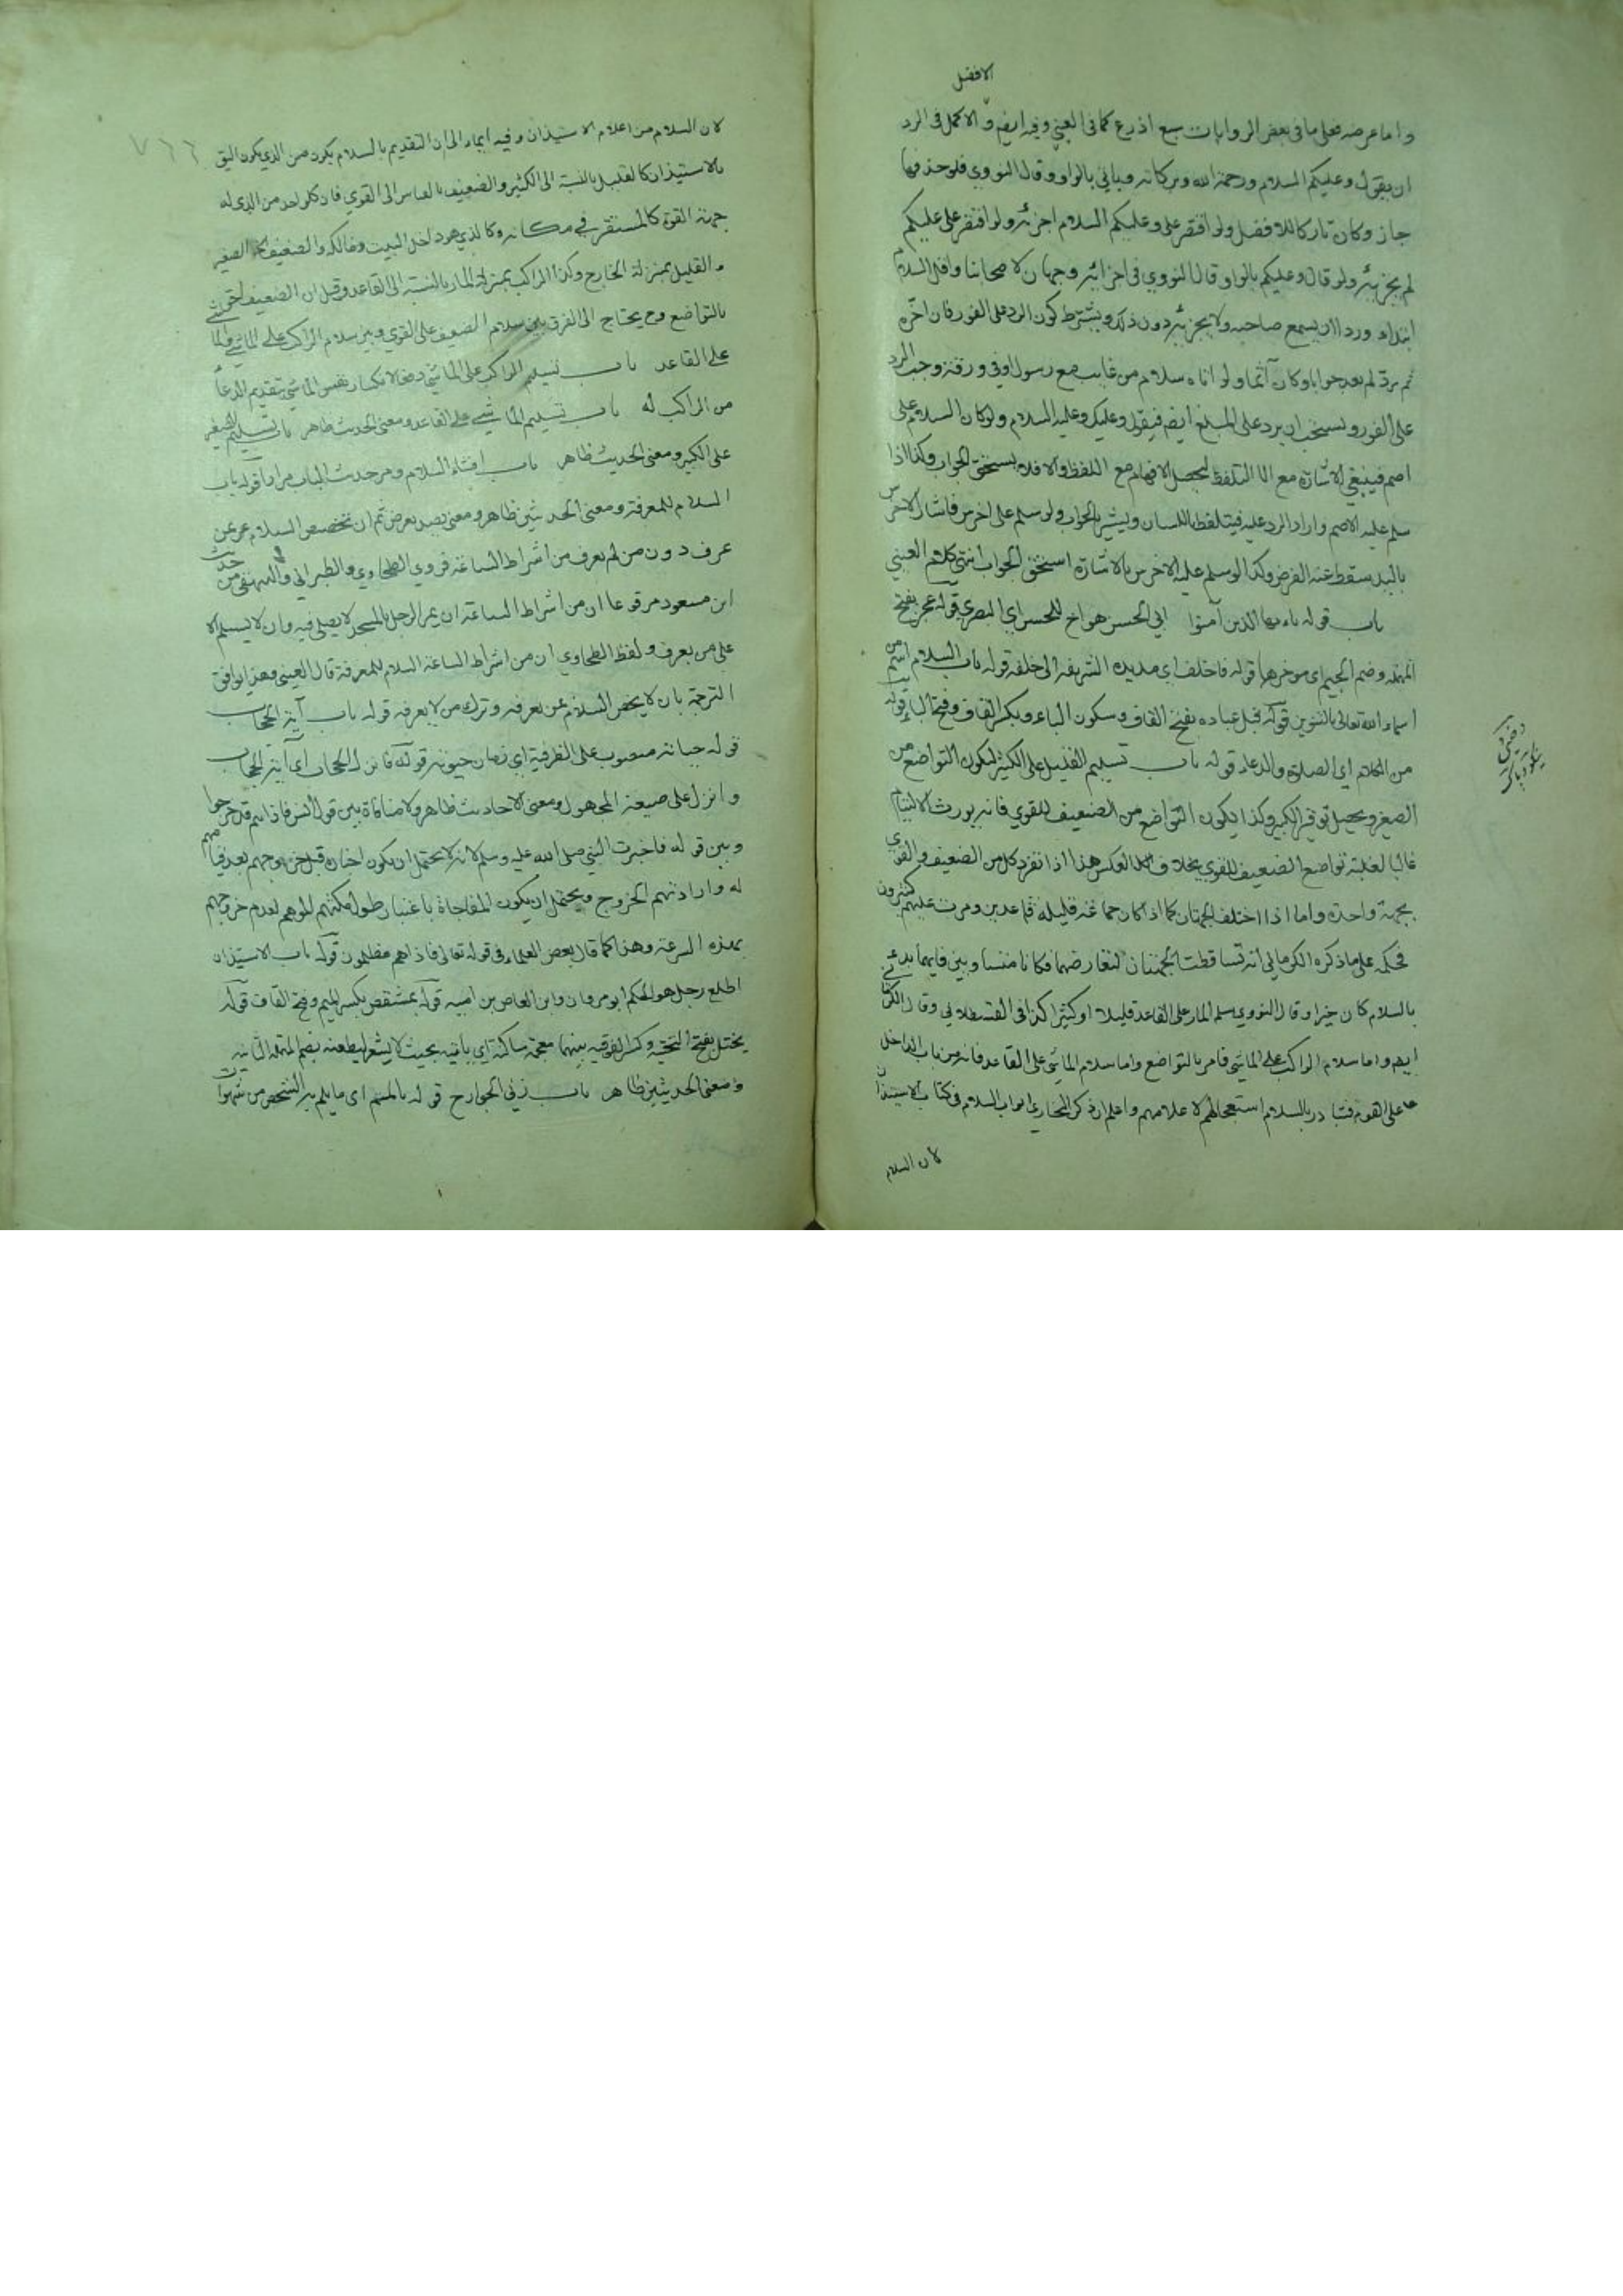 الافضل
واما عرضه فعلى ما في بعض الروايات سبع اذرع كما في العيني وفيه ايضا والاكمل في الرد
ان يقول وعليكم السلام ورحمة الله وبركاته وياتي بالواو وقال النووي فلو حذفها
جاز وكان تاركا للافضل ولو اقتصر على وعليكم السلام اجزئه ولو اقتصر على عليكم
لم يجزئه ولو قال وعليكم بالواو قال النووي في اجزائه وجهان لاصحابنا واقل السلام
ابتداء وردا ان يسمع صاحبه ولا يجزئه دون ذلك ويشترط كون الرد على الفور فان اخره
ثم رد لم يعد جوابا وكان آثما ولو اتاه سلام من غايب مع رسول او في ورقة وجب الرد
على الفور ويستحب ان يرد على المبلغ ايضا فيقول وعليك وعليه السلام ولو كان السلام على
اصم فينبغي الاشارة مع التلفظ ليحصل الافهام مع اللفظ والا فلا يستحق الجواب وكذا اذا
سلم عليه الاصم واراد الرد عليه فيتلفظ باللسان ويشير بالجواب ولو سلم على اخرس فاشار الاخرس
باليد سقط عنه الفرض وكذا لو سلم عليه الاخرس بالاشارة استحق الجواب انتهى كلام العيني
باب قوله يا ايها الذين آمنوا ابي الحسن هو اخ للحسن اي البصري قوله عجز بفتح
المهملة وضم الجيم اي موخرها قوله فاخلف اي مد يده الشريفة الى خلفه قوله باب السلام اسم من
اسماء الله تعالى بالتنوين قوله قبل عباده بفتح القاف وسكون الباء وبكسر القاف وفتح الباء قوله
من الكلام اي الصلاة والدعاء قوله باب تسليم القليل على الكثير ليكون التواضع من
الصغير ويحصل توقير الكبير وكذا يكون التواضع من الضعيف للقوي فانه يورث الالتيام
غالبا لغلبة تواضع الضعيف للقوي بخلاف العكس هذا اذا تفرد كل من الضعيف والقوي
بجهة واحدة واما اذا اختلف الجهتان كما اذا كان جماعة قليلة قاعدين ومرت عليهم كثيرون
فحكمه على ما ذكره الكرماني انه تساقطت الجهتان لتعارضهما فكانا متساويين فايهما بدء
بالسلام كان خيرا وقال النووي يسلم المار على القاعد قليلا او كثيرا كذا في القسطلاني وقال الكرماني
ايضا واما سلام الراكب على الماشي فامر بالتواضع واما سلام الماشي على القاعد فانه من باب الداخل
على القوم فتبادر بالسلام استعجالهم لاعلامهم واعلم ان ذكر البخاري ابواب السلام في كتاب الاستيذان
لان السلام
لان السلام من اعلام الاستيذان وفيه ايماء الى ان التقديم بالسلام يكون من الذي يكون اليق
بالاستيذان كالقليل بالنسبة الى الكثير والضعيف بالقياس الى القوي فان كل واحد من الذي له
جهة القوة كالمستقر في مكانه وكالذي هو داخل البيت وهو الكبير والضعيف الصغير
والقليل بمنزلة الخارج وكذا الراكب بمنزلة المار بالنسبة الى القاعد وقيل ان الضعيف احق
بالتواضع وح يحتاج الى الفرق بين سلام الضعيف على القوي وبين سلام الراكب على الماشي
على القاعد باب تسليم الراكب على الماشي وهو لانكسار نفس الماشي بتقديم الدعاء
من الراكب له باب تسليم الماشي على القاعد ومعنى الحديث ظاهر باب تسليم الصغير
على الكبير ومعنى الحديث ظاهر باب افشاء السلام ومر حديث الباب مرارا قوله باب
السلام للمعرفة ومعنى الحديثين ظاهر ومعنى يصد يعرض ثم ان تخصيص السلام عمن
عرف دون من لم يعرف من اشراط الساعة فروي الطحاوي والطبراني والبيهقي من حديث
ابن مسعود مرفوعا ان من اشراط الساعة ان يمر الرجل بالمسجد لا يصلي فيه وان لا يسلم الا
على من يعرف ولفظ الطحاوي ان من اشراط الساعة السلام للمعرفة قال العيني وهذا يوافق
الترجمة بان لا يخص السلام بمن يعرفه وترك من لا يعرفه قوله باب آية الحجاب
قوله حياته منصوب على الظرفية اي زمان حيوته قوله فانزل الحجاب اي آية الحجاب
وانزل على صيغة المجهول ومعنى الاحاديث ظاهر ولا منافاة بين قول انس فاذا هم قد خرجوا
وبين قوله فاخبرت النبي صلى الله عليه وسلم لانه يحتمل ان يكون اخباره قبل خروجهم بعد قيامهم
له وارادتهم الخروج ويحتمل ان يكون المفاجاة باعتبار طول مكثهم الموهم لعدم خروجهم
بهذه السرعة وهذا كما قال بعض العلماء في قوله تعالى فاذا هم مظلمون قوله باب الاستيذان
اطلع رجل هو الحكم ابو مروان وابن العاص بن امية قوله بمشقص بكسر الميم وفتح القاف قوله
يختل بفتح التحتية وكسر الفوقية بينهما معجمة ساكنة اي ياتيه بحيث لا يشعر ليطعنه بضم المهملة الثانية
ومعنى الحديثين ظاهر باب زنى الجوارح قوله باللمم اي ما يلم به الشخص من شهوات